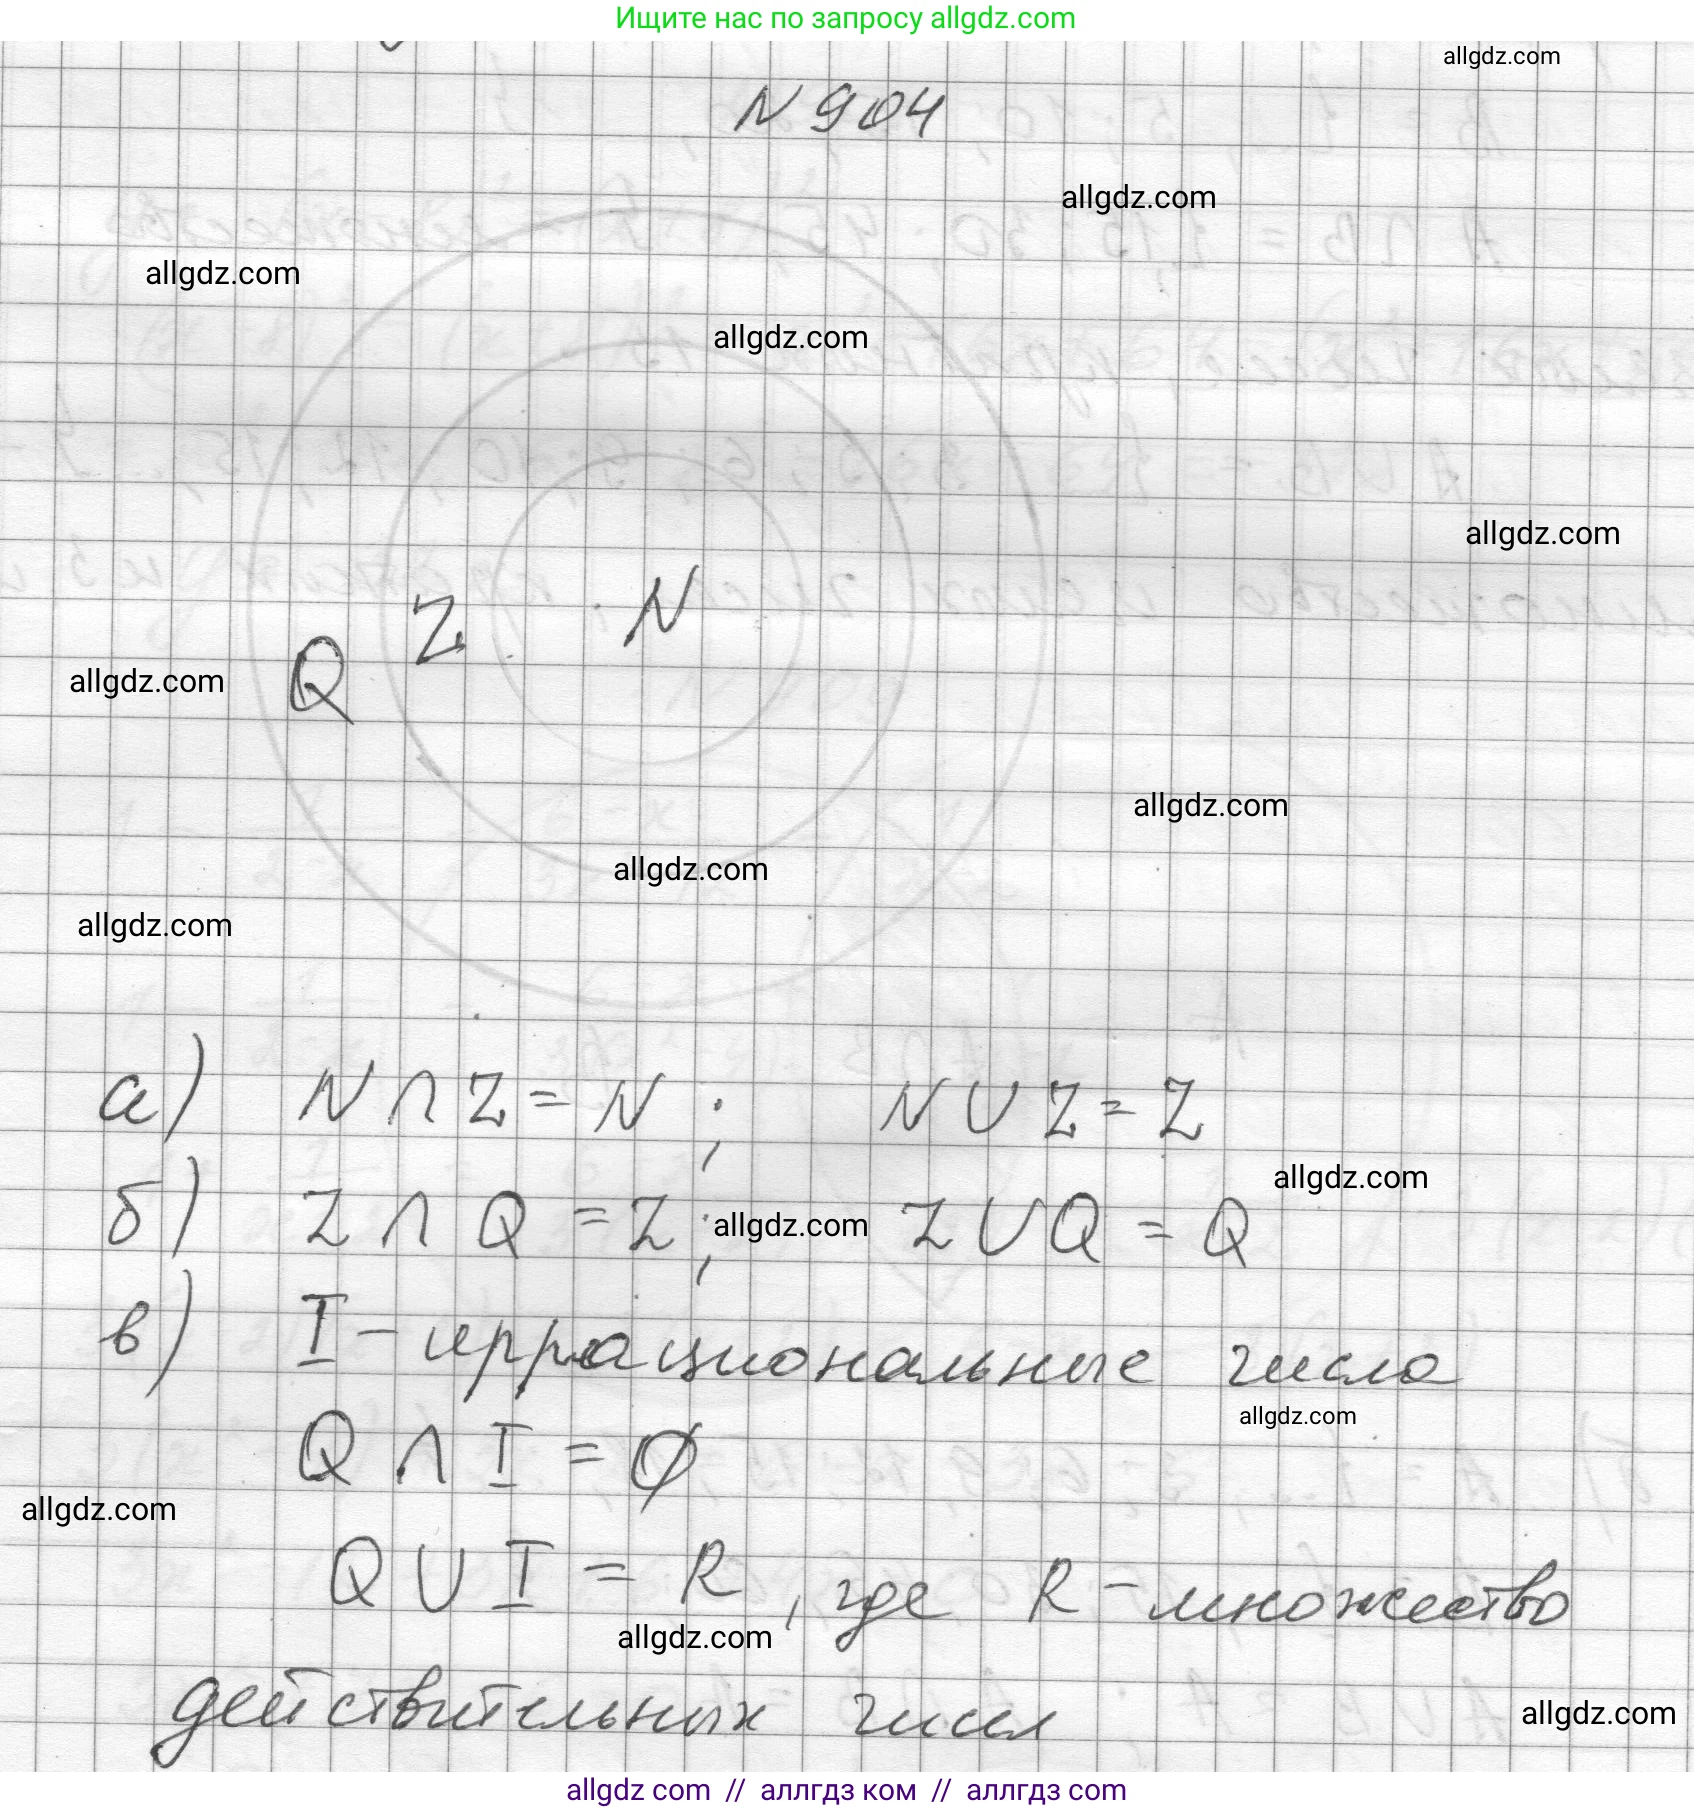 Ищите нас по запросу allgdz.com
allgdz.com
N 904
allgdz.com
allgdz.com
allgdz.com
allgdz.com
Q Z N
allgdz.com
allgdz.com
allgdz.com
allgdz.com
а) N ∩ Z = N ; N ∪ Z = Z
allgdz.com
б) Z ∩ Q = Z ; allgdz.com Z ∪ Q = Q
в) I – иррациональные числа
allgdz.com
Q ∩ I = ∅
allgdz.com
Q ∪ I = R , где R – множество
allgdz.com
действительных чисел
allgdz.com
allgdz com // аллгдз ком // аллгдз com